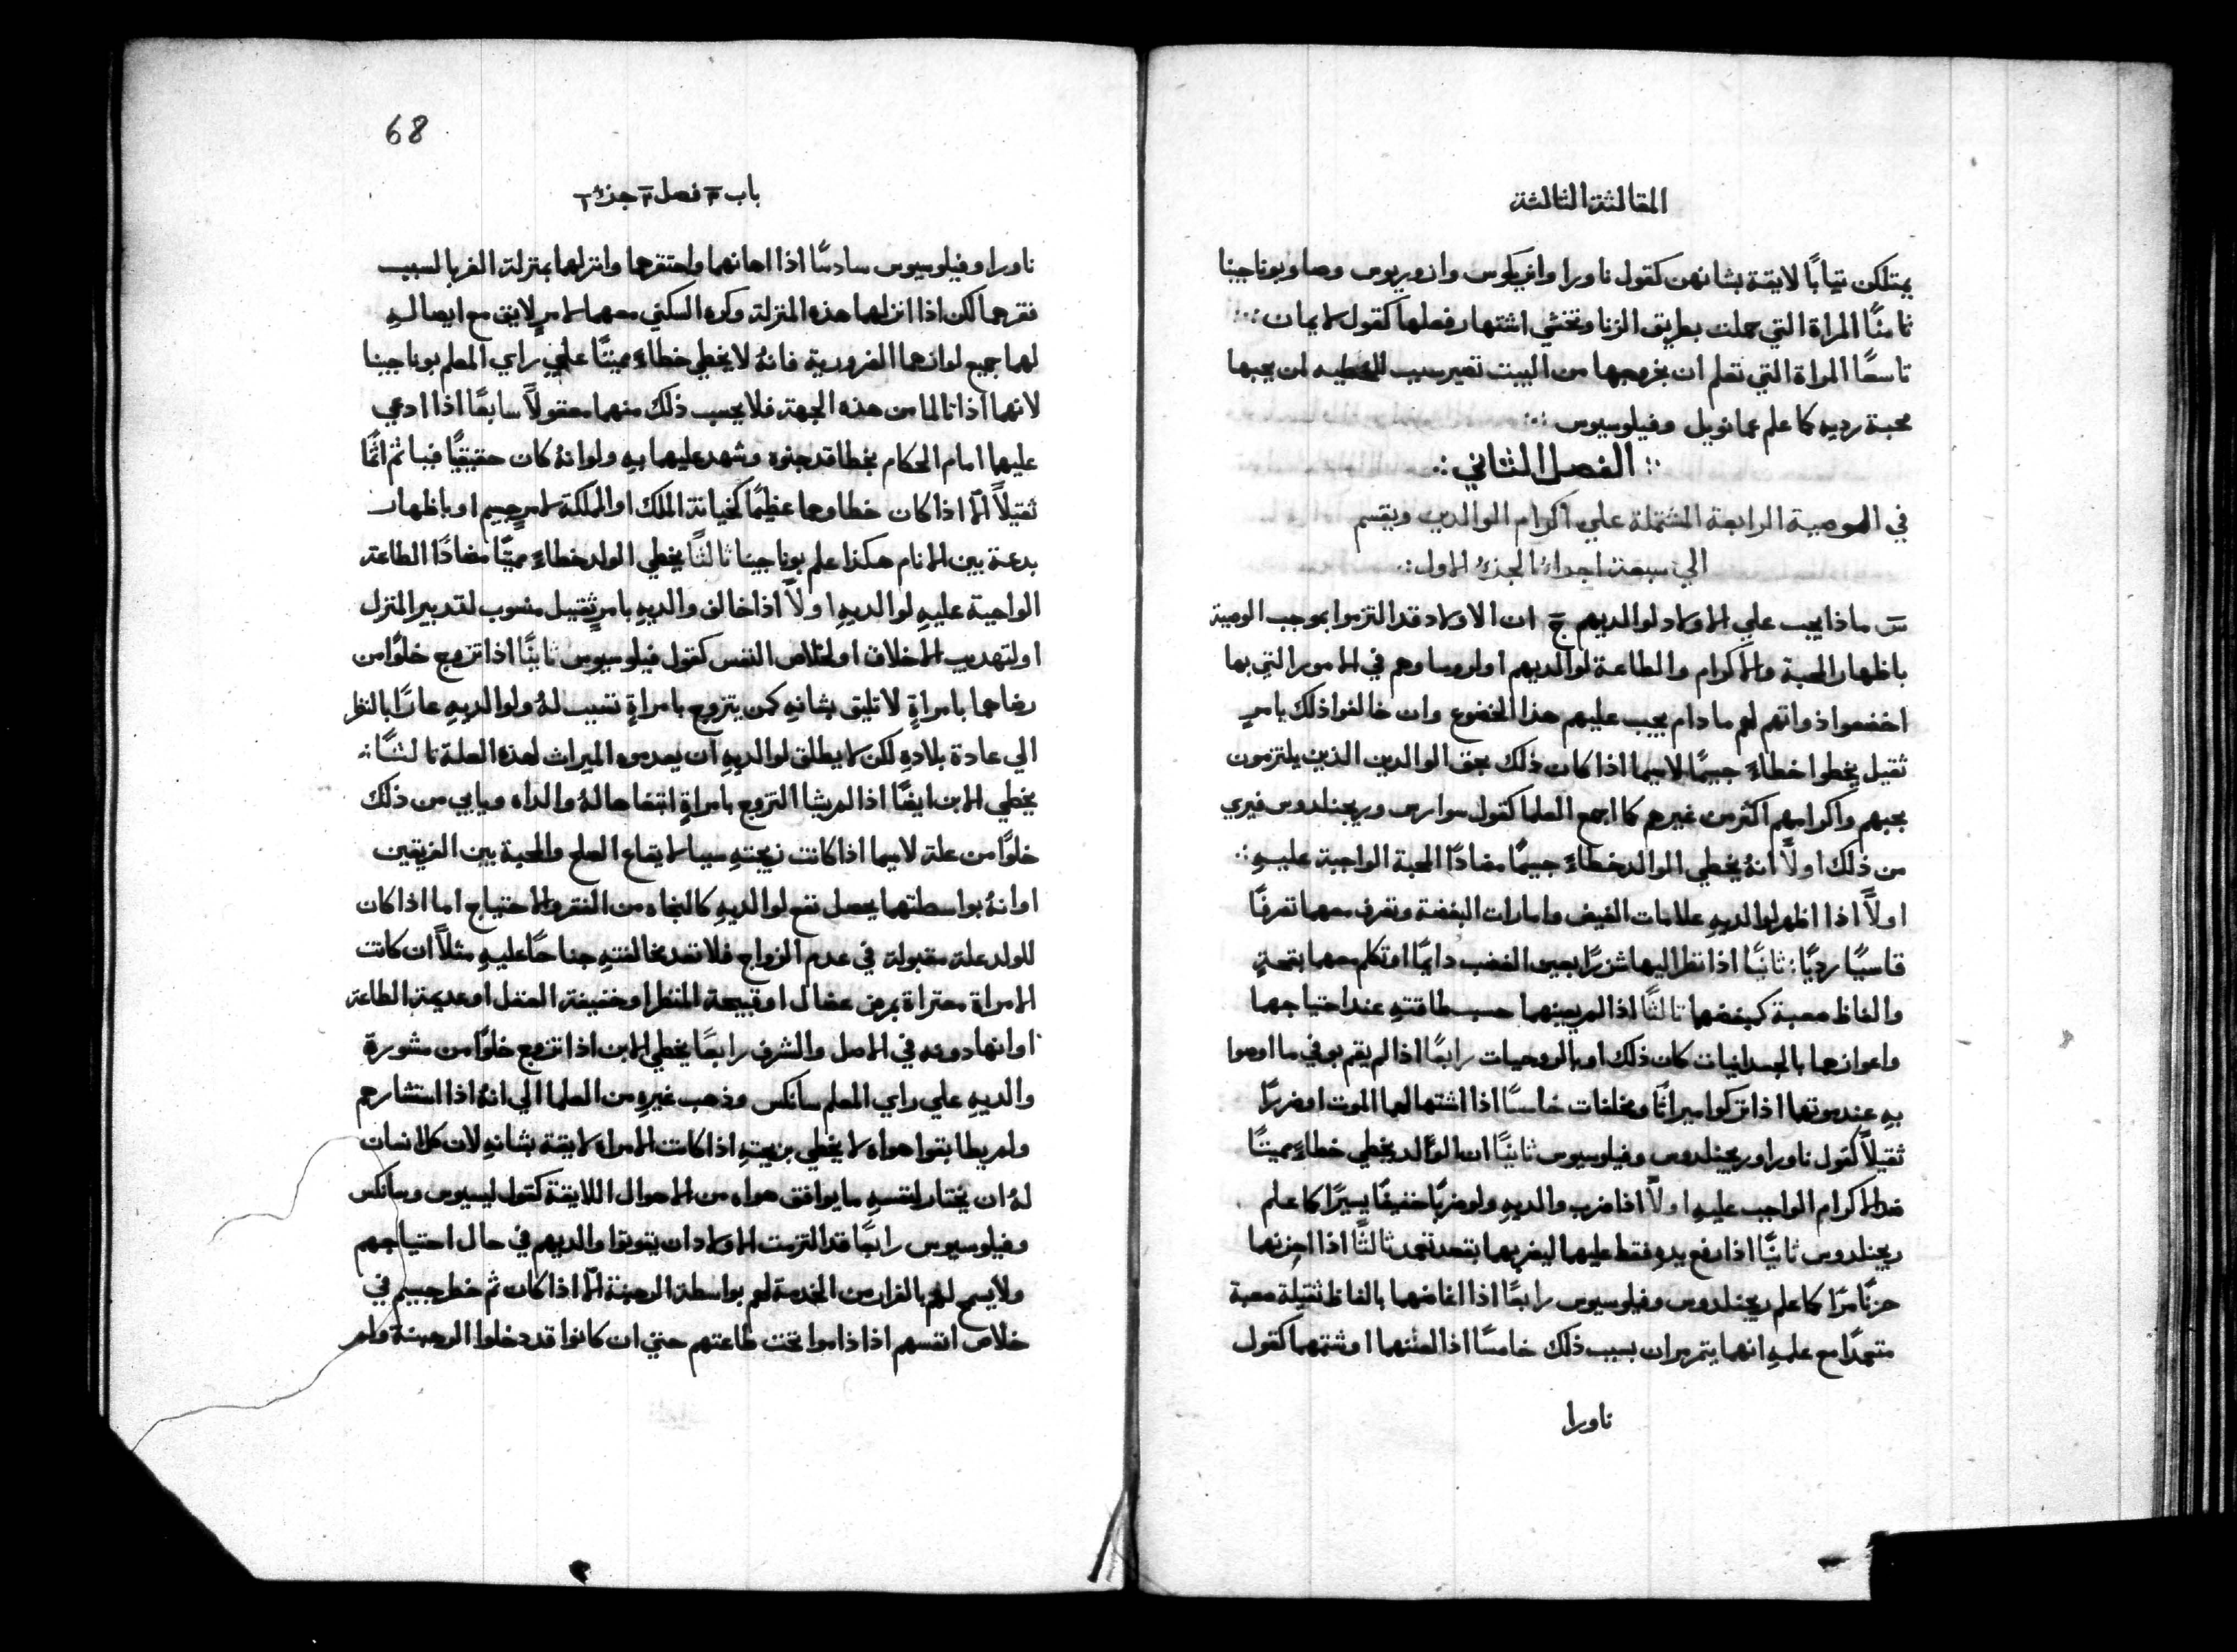 المقالة الثالثة
يمتلكن تيابًا لايقة بشانهن كقول ناورا وانريكوس وازوريوس وصا وبوناجينا
ثامنًا المراة التي حملت بطريق الزنا وتخشي اشتهار فعلها كقول لايمان
تاسعًا المراة التي تعلم ان بخروجها من البيت تصير سبب الخطيه لمن يحبها
محبة رديه كما علم عمانويل وفيلوسيوس
الفصل الثاني
في الوصية الرابعة المشتملة علي اكرام الوالدين ويقسم
الي سبعة اجزاء الجزء الاول
س ماذا يجب علي الاولاد لوالديهم ج ان الاولاد قد التزموا بموجب الوصية
باظهار المحبة والاكرام والطاعة لوالديهم او لروساوهم في الامور التي بها
اخضعوا ذواتهم لهم مادام يجب عليهم هذا الخضوع وان خالفوا ذلك بامرٍ
ثقيل يخطوا خطاءً جسيمًا لاسيما اذا كان ذلك بحق الوالدين الذين يلتزمون
بحبهم واكرامهم اكثر من غيرهم كما اجمع العلما كقول سوارس وريجنلدوس فيري
من ذلك اولًا انهُ يخطي الوالد خطاءً جسيمًا مضادًا المحبة الواجبة عليهِ
اولًا اذا اظهر لوالديهِ علامات الغيض وامارات البغضة وتصرف معهما تصرفًا
قاسيًا رديًا ثانيًا اذا نظر اليهما شزرًا بعين الغضب دايمًا او تكلم معهما بقحةٍ
والفاظ صعبة كبغضهما ثالثًا اذا لم يعينهما حسب طاقتهِ عند احتياجهما
واعوازهما بالجسدانيات كان ذلك او بالروحيات رابعًا اذا لم يقم بوفي ما اوصوا
بهِ عند موتهما اذا تركوا ميراثًا ومخلفات خامسًا اذا اشتها لهما الموت او ضررًا
ثقيلًا كقول ناورا وريجنلدوس وفيلوسيوس ثانيًا ان الولد يخطي خطاءً مميتًا
ضد الاكرام الواجب عليهِ اولًا اذا ضرب والديهِ ولو ضربًا خفيفًا يسيرًا كما علم
ريجنلدوس ثانيًا اذا رفع يده فقط عليهما ليضربهما بتعمد ثالثًا اذا احزنهما
حزنًا مرًا كما علم ريجنلدوس وفيلوسيوس رابعًا اذا اغاضهما بالفاظ ثقيلة صعبة
متعمدًا مع علمهِ انهما يتمرمران بسبب ذلك خامسًا اذا لعنهما او شتمهما كقول
ناورا
68
باب ٣ فصل ٢ جزء ١
ناورا وفيلوسيوس سادسًا اذا اهانهما واحتقرهما وانزلهما بمنزلة الغربا لسبب
فقرهما لكن اذا انزلهما هذه المنزلة وكره السكني معهما لامرٍ لايق مع ايصالهِ
لهما جميع لوازمهما الضرورية فانهُ لا يخطي خطاءً مميتًا علي راي المعلم بوناجينا
لانهما اذا تالما من هذه الجهة فلا يحسب ذلك منهما معقولًا سابعًا اذا ادعي
عليهما امام الحكام بخطا قد جنوه وشهد عليهما بهِ ولو انهُ كان حقيقيًا فياثم اثمًا
ثقيلًا الا اذا كان خطاوهما عظيمًا كخيانة الملك او المملكة لامرٍ جسيم او باظهار
بدعة بين الانام هكذا علم بوناجينا ثالثًا يخطي الولد خطاءً مميتًا مضادًا الطاعة
الواجبة عليهِ لوالديهِ اولًا اذا خالف والديهِ بامرٍ ثقيل منسوب لتدبير المنزل
او لتهديب الاخلاق او لخلاص النفس كقول فيلوسيوس ثانيًا اذا تزوج خلوًا من
رضاهما بامراةٍ لا تليق بشانهِ كمن يتزوج بامراةٍ تسبب لهُ ولوالديهِ عارًا بالنظر
الي عادة بلادهِ لكن لا يطلق لوالديهِ ان يعدموه الميراث لهذه العلة ثالثًا انه
يخطي الابن ايضًا اذا لم يشا التزوج بامراةٍ انتخاها لهُ والداه ويابي من ذلك
خلوًا من علة لاسيما اذا كانت زيجتهِ سببا لايقاع الصلح والمحبة بين الفريقين
او انهُ بواسطتهما يحصل نفع لوالديهِ كالنجاه من الفقر والاحتياج اما اذا كان
للولد علة مقبولة في عدم الزواج فلا تعد مخالفتهِ جناحًا عليهِ مثلًا ان كانت
الامراة معتراة بمرض عضال او قبيحة المنظر او خفيفة العقل او عديمة الطاعة
او انها دونه في الاصل والشرف رابعًا يخطي الابن اذا تزوج خلوًا من مشورة
والديهِ علي راي المعلم سانكس وذهب غيره من العلما الي انهُ اذا استشارهم
ولم يطابقوا هواه لا يخطي بزيجتهِ اذا كانت الامراه لايقة بشانهِ لان كل انسان
لهُ ان يختار لنفسهِ ما يوافق هواه من الاحوال اللايقة كقول ليسيوس وسانكس
وفيلوسيوس رابعًا قد التزمت الاولاد ان يقوتوا والديهم في حال احتياجهم
ولا يسمح لهم بالفرار من الخدمة لهم بواسطة الرهبنة الا اذا كان ثم خطر جسيم في
خلاص انفسهم اذا داموا تحت طاعتهم حتي ان كانوا قد دخلوا الرهبنة ولم